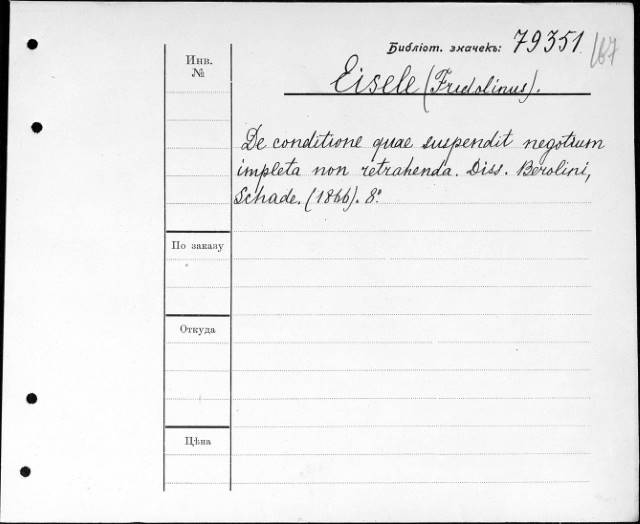 Библіот. значекъ: 79351 /67
Инв.
№
Eisele (Fridolinus).
De conditione quae suspendit negotium
impleta non retrahenda. Diss. Berolini,
Schade. (1866). 8°.
По заказу
Откуда
Цѣна